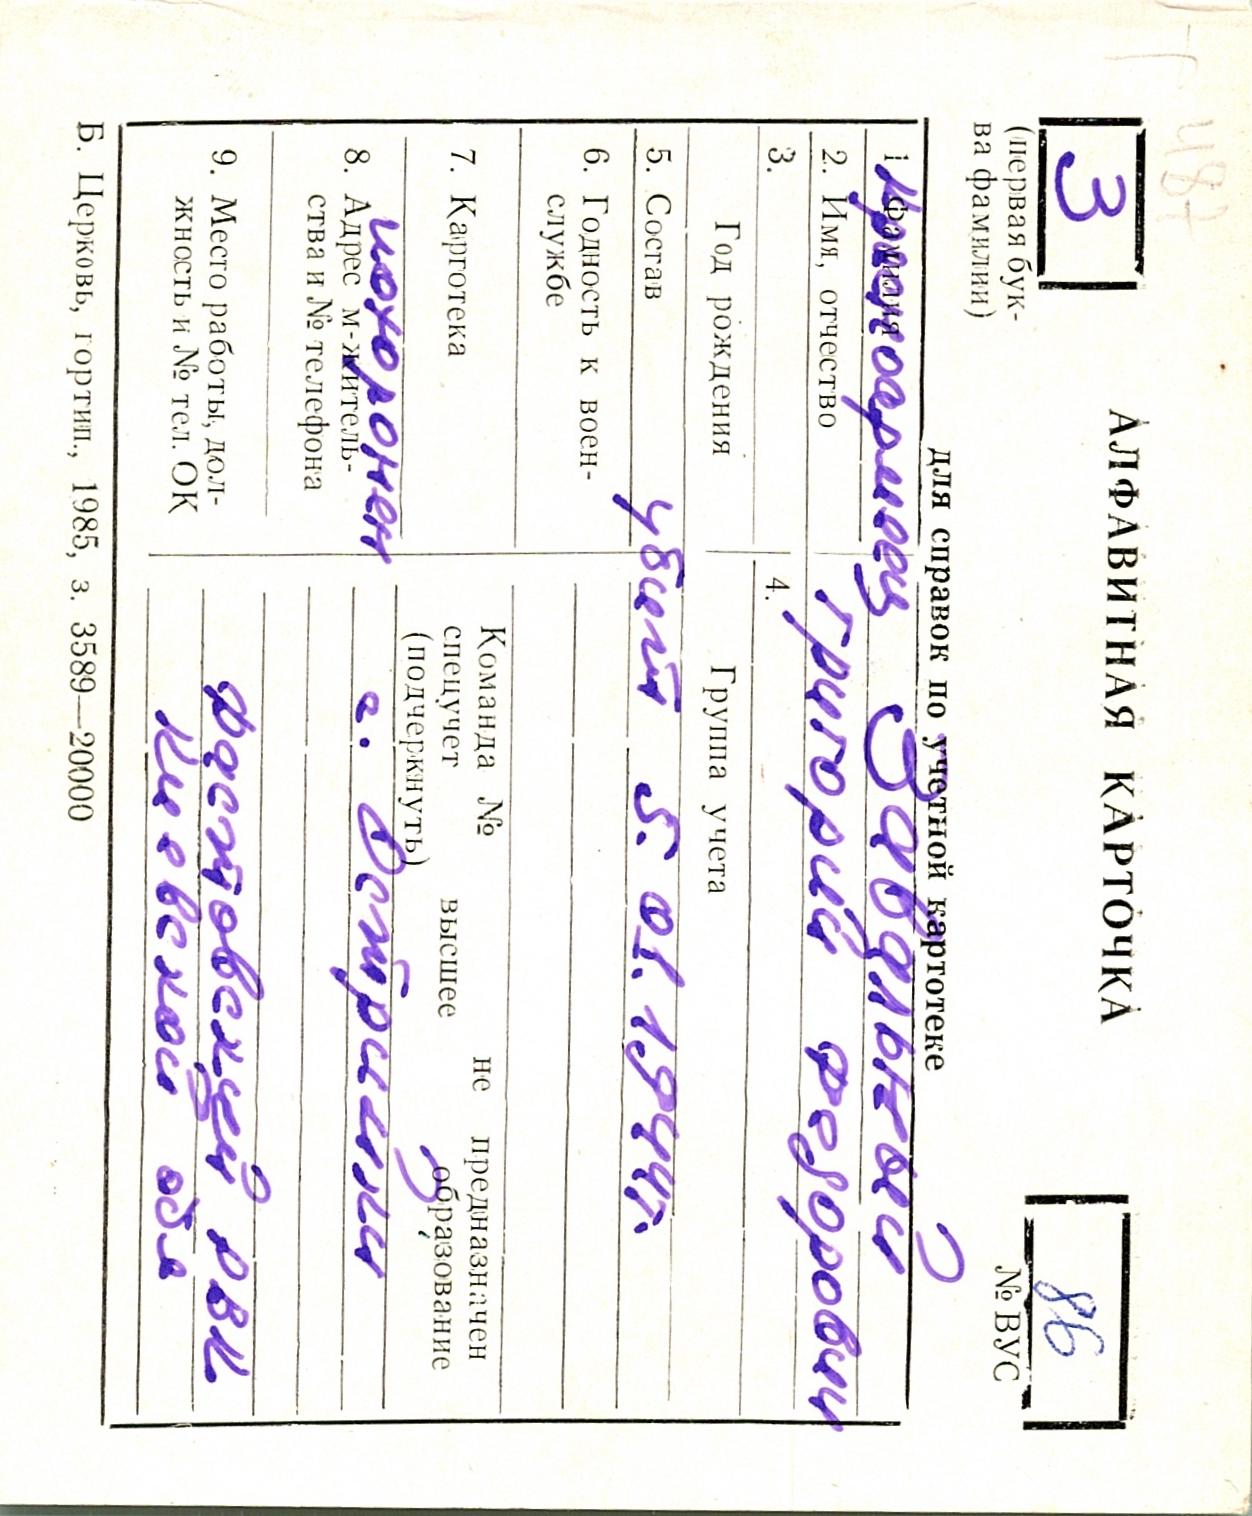 З
(первая бук-
ва фамилии)
АЛФАВИТНАЯ КАРТОЧКА
для справок по учетной картотеке
86
№ ВУС
1. Фамилия красноармеец Забдлыкой
2. Имя, отчество Григорий Федорович
3. Год рождения
4. Группа учета
5. Состав убит 5.01.1944г.
6. Годность к воен-
службе
7. Карготека
Команда № не предназначен
спецучет высшее образование
(подчеркнуть)
похоронен
8. Адрес м-житель-
ства и № телефона
с. Остриили
9. Место работы, дол-
жность и № тел. ОК
Фастовский РВК
Киевской обл
Б. Церковь, гортип., 1985, з. 3589—20000